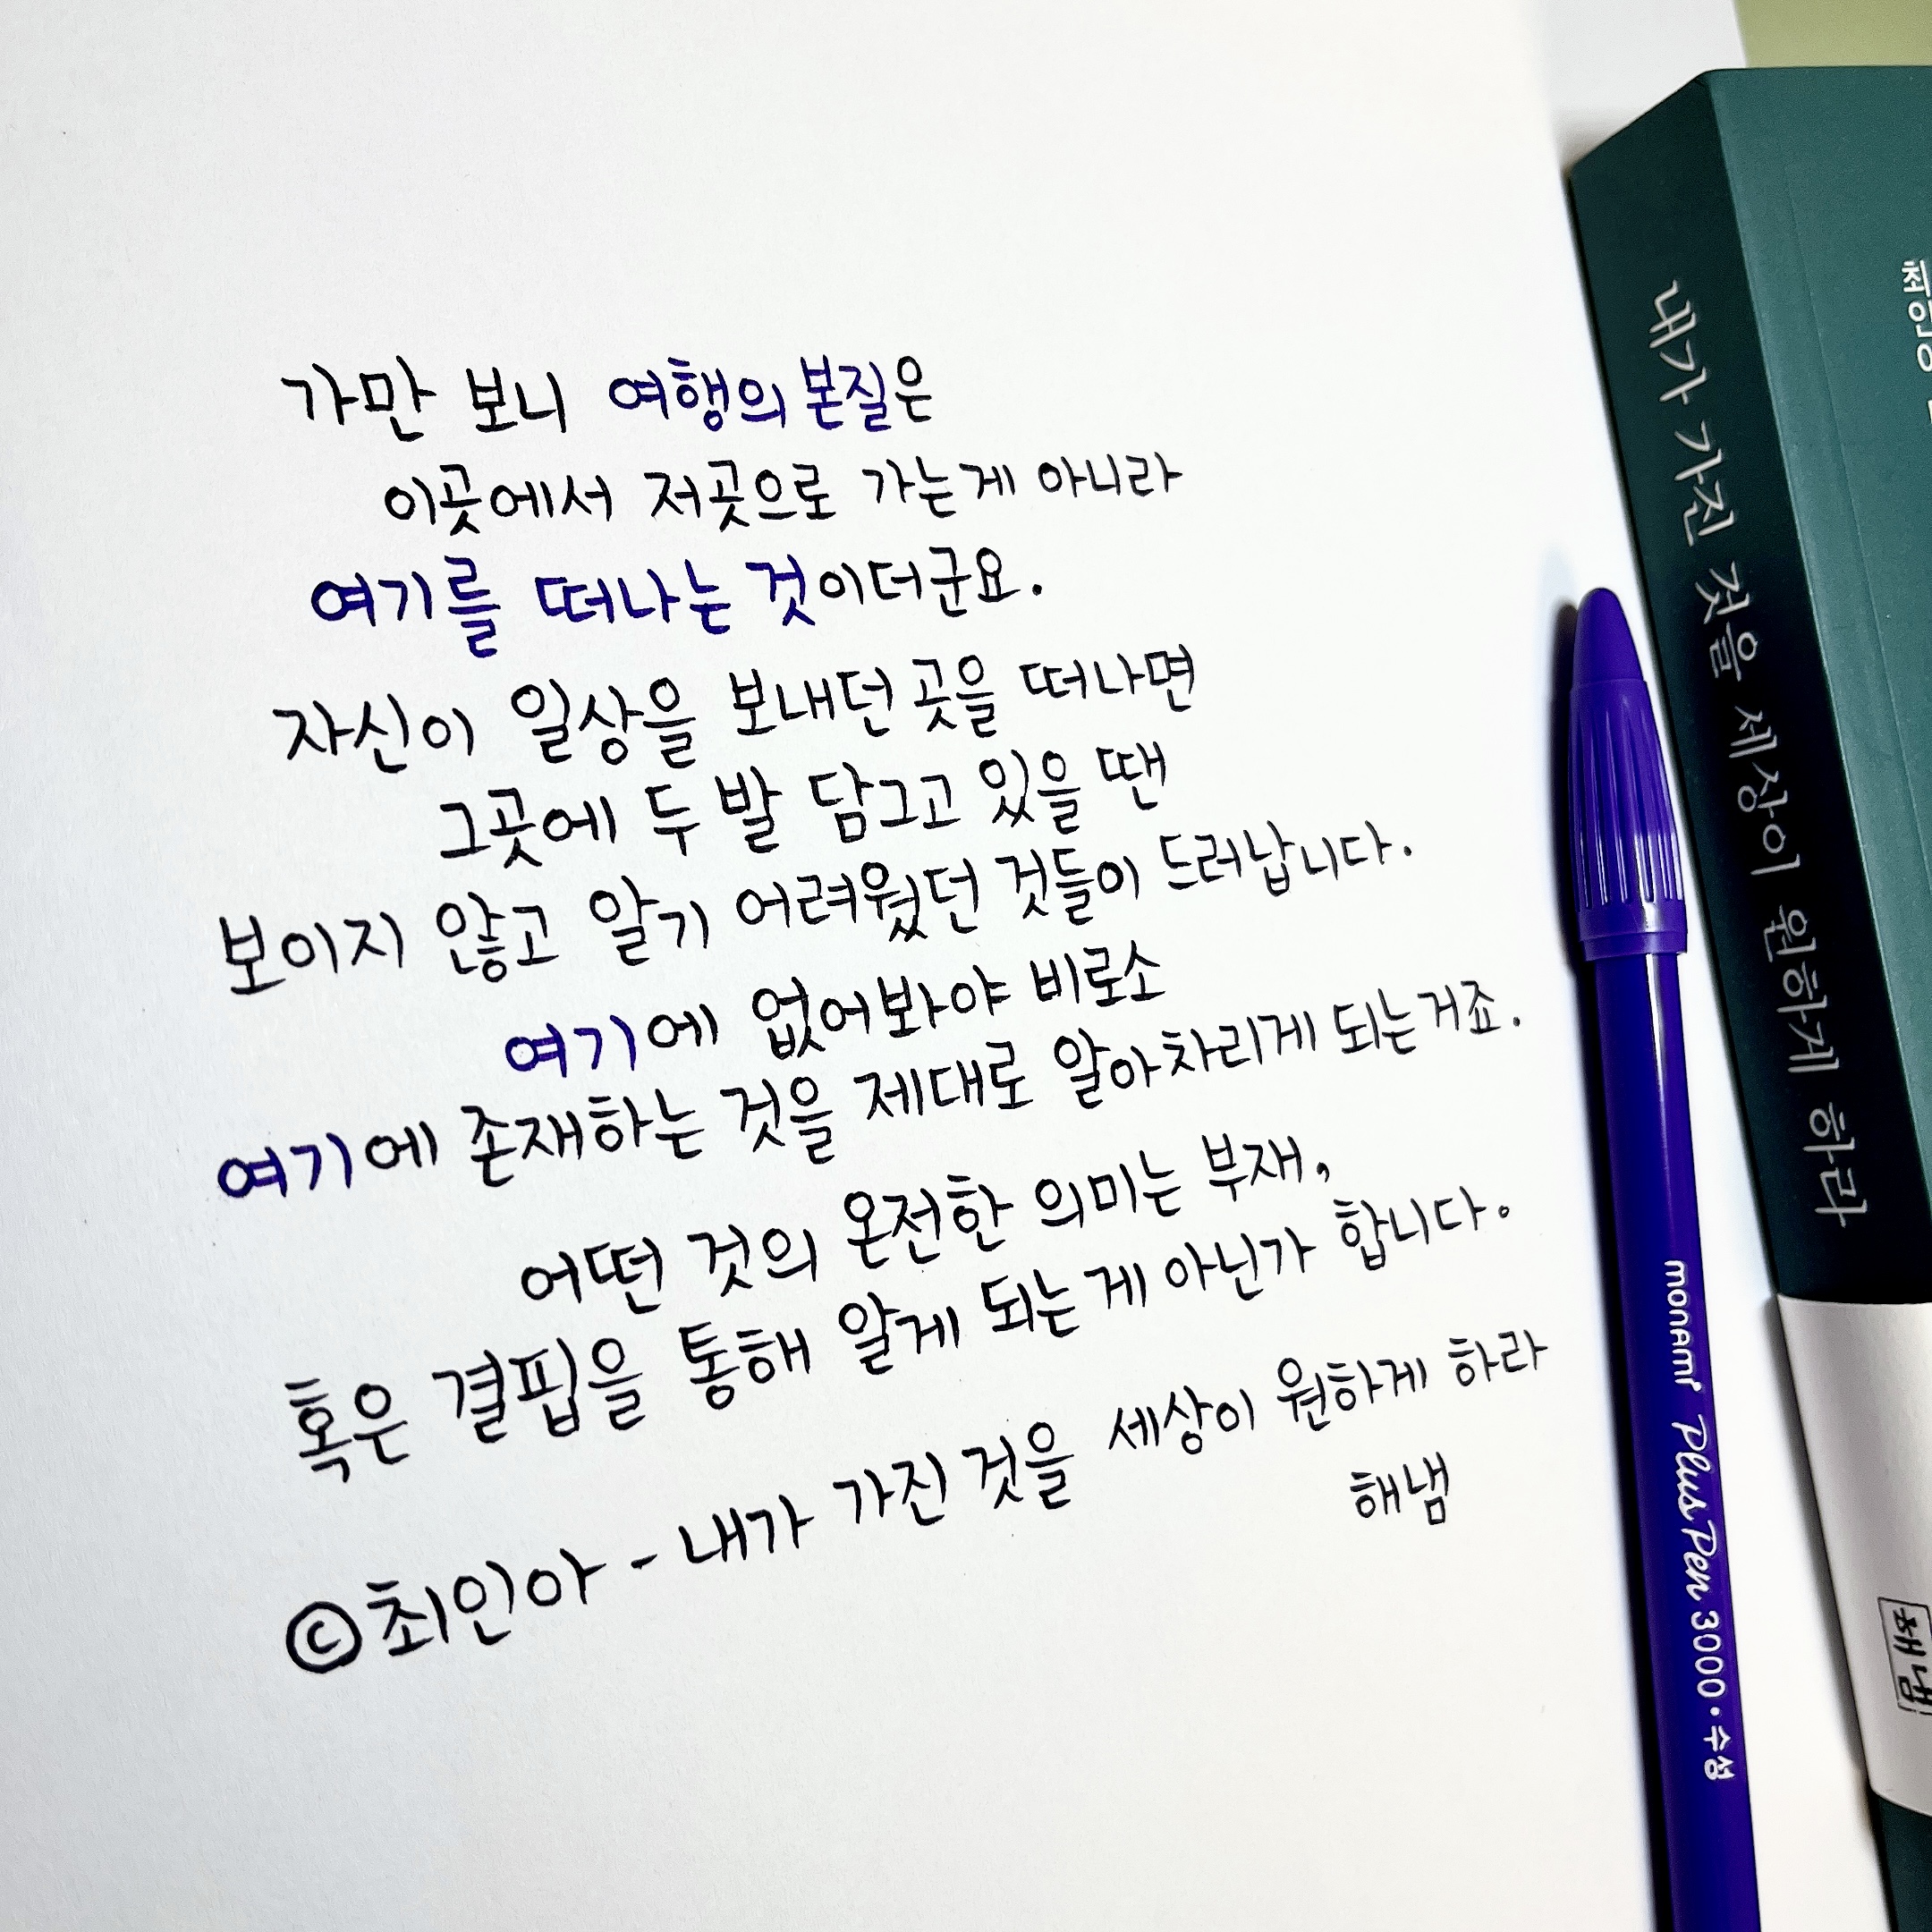 가만 보니 여행의 본질은
이곳에서 저곳으로 가는게 아니라
여기를 떠나는 것이더군요.
자신이 일상을 보내던 곳을 떠나면
그곳에 두 발 담그고 있을 땐
보이지 않고 알기 어려웠던 것들이 드러납니다.
여기에 없어봐야 비로소
여기에 존재하는 것을 제대로 알아차리게 되는거죠.
어떤 것의 온전한 의미는 부재,
혹은 결핍을 통해 알게 되는게 아닌가 합니다.
©최인아 - 내가 가진 것을 세상이 원하게 하라
해냄
monami Plus Pen 3000 • 수성
내가 가진 것을 세상이 원하게 하라
최인아
해냄